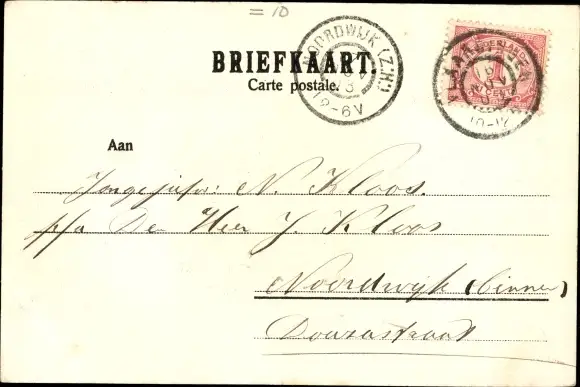 = 10
BRIEFKAART.
Carte postale.
NOORDWIJK (Z:H:)
12-6V
10-12
1
CENT
Aan
Jongejufvr: N. Kloos.
p/a Den Heer J. Kloos
Noordwijk (binnen)
Douzastraat